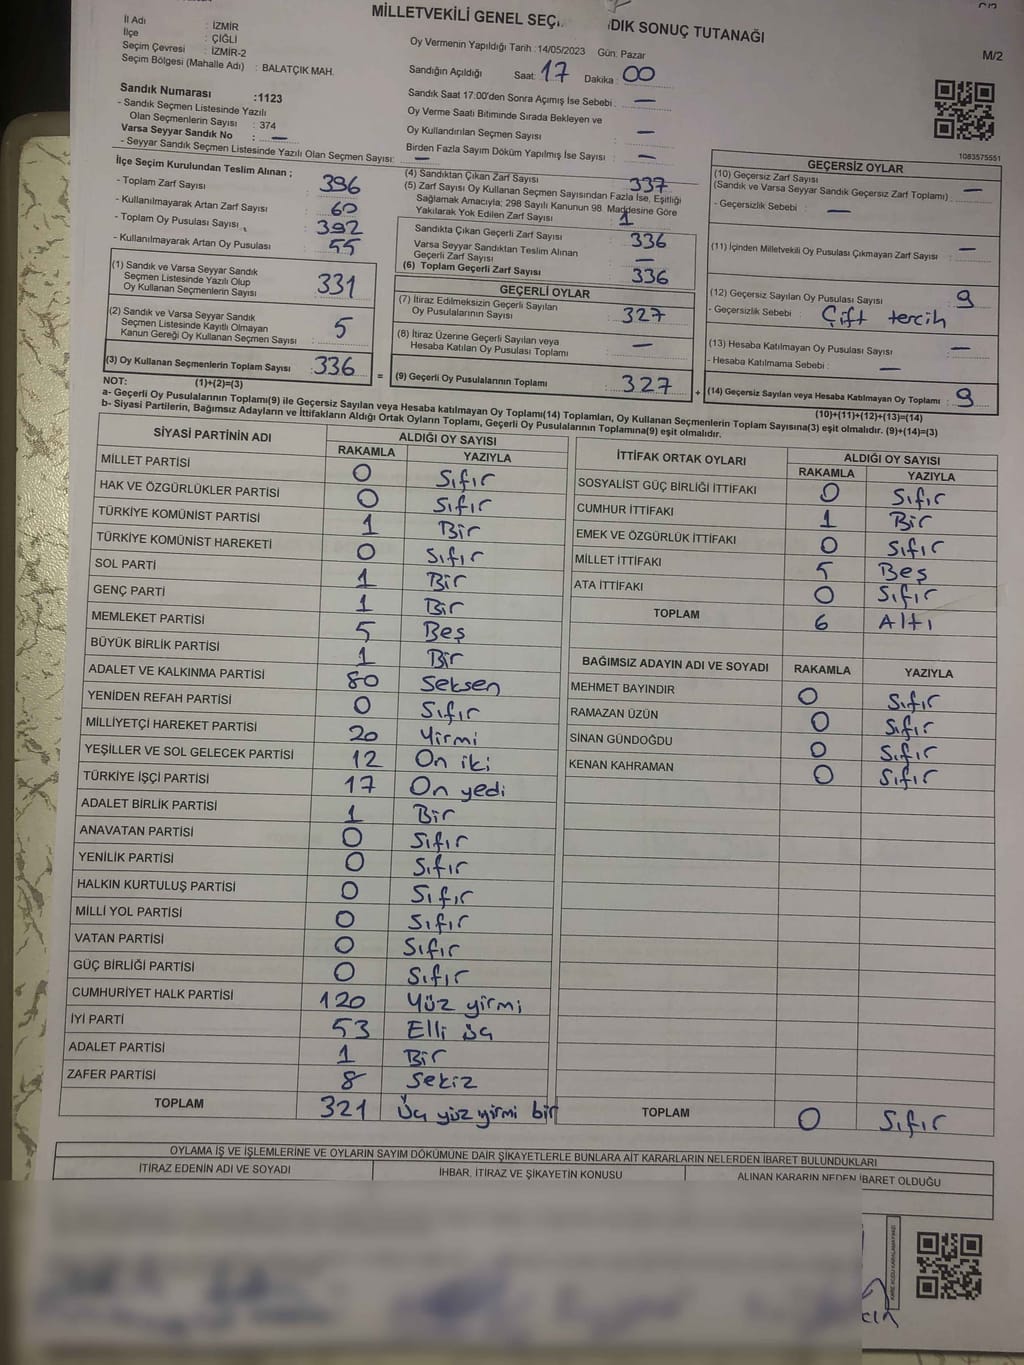 MİLLETVEKİLİ GENEL SEÇ. DIK SONUÇ TUTANAĞI
M/2
İl Adı : İZMİR
İlçe : ÇİĞLİ
Seçim Çevresi : İZMİR-2
Seçim Bölgesi (Mahalle Adı) : BALATÇIK MAH.
Oy Vermenin Yapıldığı Tarih :14/05/2023 Gün: Pazar
Sandığın Açıldığı Saat: 17 Dakika : 00
Sandık Numarası :1123
- Sandık Seçmen Listesinde Yazılı
Olan Seçmenlerin Sayısı : 374
Varsa Seyyar Sandık No : —
- Seyyar Sandık Seçmen Listesinde Yazılı Olan Seçmen Sayısı: —
Sandık Saat 17:00'den Sonra Açımış İse Sebebi : —
Oy Verme Saati Bitiminde Sırada Bekleyen ve
Oy Kullandırılan Seçmen Sayısı : —
Birden Fazla Sayım Döküm Yapılmış İse Sayısı : —
1083575551
İlçe Seçim Kurulundan Teslim Alınan ;
- Toplam Zarf Sayısı : 396
- Kullanılmayarak Artan Zarf Sayısı : 60
- Toplam Oy Pusulası Sayısı : 392
- Kullanılmayarak Artan Oy Pusulası : 55
(1) Sandık ve Varsa Seyyar Sandık
Seçmen Listesinde Yazılı Olup
Oy Kullanan Seçmenlerin Sayısı : 331
(2) Sandık ve Varsa Seyyar Sandık
Seçmen Listesinde Kayıtlı Olmayan
Kanun Gereği Oy Kullanan Seçmen Sayısı : 5
(3) Oy Kullanan Seçmenlerin Toplam Sayısı : 336
(4) Sandıktan Çıkan Zarf Sayısı : 337
(5) Zarf Sayısı Oy Kullanan Seçmen Sayısından Fazla İse, Eşitliği
Sağlamak Amacıyla; 298 Sayılı Kanunun 98. Maddesine Göre
Yakılarak Yok Edilen Zarf Sayısı : 1
Sandıkta Çıkan Geçerli Zarf Sayısı : 336
Varsa Seyyar Sandıktan Teslim Alınan
Geçerli Zarf Sayısı : —
(6) Toplam Geçerli Zarf Sayısı : 336
GEÇERLİ OYLAR
(7) İtiraz Edilmeksizin Geçerli Sayılan
Oy Pusulalarının Sayısı : 327
(8) İtiraz Üzerine Geçerli Sayılan veya
Hesaba Katılan Oy Pusulası Toplamı : —
= (9) Geçerli Oy Pusulalarının Toplamı : 327
GEÇERSİZ OYLAR
(10) Geçersiz Zarf Sayısı
(Sandık ve Varsa Seyyar Sandık Geçersiz Zarf Toplamı) : —
- Geçersizlik Sebebi : —
(11) İçinden Milletvekili Oy Pusulası Çıkmayan Zarf Sayısı : —
(12) Geçersiz Sayılan Oy Pusulası Sayısı : 9
- Geçersizlik Sebebi : Çift tercih
(13) Hesaba Katılmayan Oy Pusulası Sayısı : —
- Hesaba Katılmama Sebebi : —
+ (14) Geçersiz Sayılan veya Hesaba Katılmayan Oy Toplamı : 9
NOT: (1)+(2)=(3)
(10)+(11)+(12)+(13)=(14)
a- Geçerli Oy Pusulalarının Toplamı(9) ile Geçersiz Sayılan veya Hesaba katılmayan Oy Toplamı(14) Toplamları, Oy Kullanan Seçmenlerin Toplam Sayısına(3) eşit olmalıdır. (9)+(14)=(3)
b- Siyasi Partilerin, Bağımsız Adayların ve İttifakların Aldığı Ortak Oyların Toplamı, Geçerli Oy Pusulalarının Toplamına(9) eşit olmalıdır.
SİYASİ PARTİNİN ADI ALDIĞI OY SAYISI
RAKAMLA YAZIYLA
MİLLET PARTİSİ 0 Sıfır
HAK VE ÖZGÜRLÜKLER PARTİSİ 0 Sıfır
TÜRKİYE KOMÜNİST PARTİSİ 1 Bir
TÜRKİYE KOMÜNİST HAREKETİ 0 Sıfır
SOL PARTİ 1 Bir
GENÇ PARTİ 1 Bir
MEMLEKET PARTİSİ 5 Beş
BÜYÜK BİRLİK PARTİSİ 1 Bir
ADALET VE KALKINMA PARTİSİ 80 Seksen
YENİDEN REFAH PARTİSİ 0 Sıfır
MİLLİYETÇİ HAREKET PARTİSİ 20 Yirmi
YEŞİLLER VE SOL GELECEK PARTİSİ 12 On iki
TÜRKİYE İŞÇİ PARTİSİ 17 On yedi
ADALET BİRLİK PARTİSİ 1 Bir
ANAVATAN PARTİSİ 0 Sıfır
YENİLİK PARTİSİ 0 Sıfır
HALKIN KURTULUŞ PARTİSİ 0 Sıfır
MİLLİ YOL PARTİSİ 0 Sıfır
VATAN PARTİSİ 0 Sıfır
GÜÇ BİRLİĞİ PARTİSİ 0 Sıfır
CUMHURİYET HALK PARTİSİ 120 Yüz yirmi
İYİ PARTİ 53 Elli üç
ADALET PARTİSİ 1 Bir
ZAFER PARTİSİ 8 Sekiz
TOPLAM 321 Üç yüz yirmi bir
İTTİFAK ORTAK OYLARI ALDIĞI OY SAYISI
RAKAMLA YAZIYLA
SOSYALİST GÜÇ BİRLİĞİ İTTİFAKI 0 Sıfır
CUMHUR İTTİFAKI 1 Bir
EMEK VE ÖZGÜRLÜK İTTİFAKI 0 Sıfır
MİLLET İTTİFAKI 5 Beş
ATA İTTİFAKI 0 Sıfır
TOPLAM 6 Altı
BAĞIMSIZ ADAYIN ADI VE SOYADI RAKAMLA YAZIYLA
MEHMET BAYINDIR 0 Sıfır
RAMAZAN ÜZÜN 0 Sıfır
SİNAN GÜNDOĞDU 0 Sıfır
KENAN KAHRAMAN 0 Sıfır
TOPLAM 0 Sıfır
OYLAMA İŞ VE İŞLEMLERİNE VE OYLARIN SAYIM DÖKÜMÜNE DAİR ŞİKAYETLERLE BUNLARA AİT KARARLARIN NELERDEN İBARET BULUNDUKLARI
İTİRAZ EDENİN ADI VE SOYADI İHBAR, İTİRAZ VE ŞİKAYETİN KONUSU ALINAN KARARIN NEDEN İBARET OLDUĞU